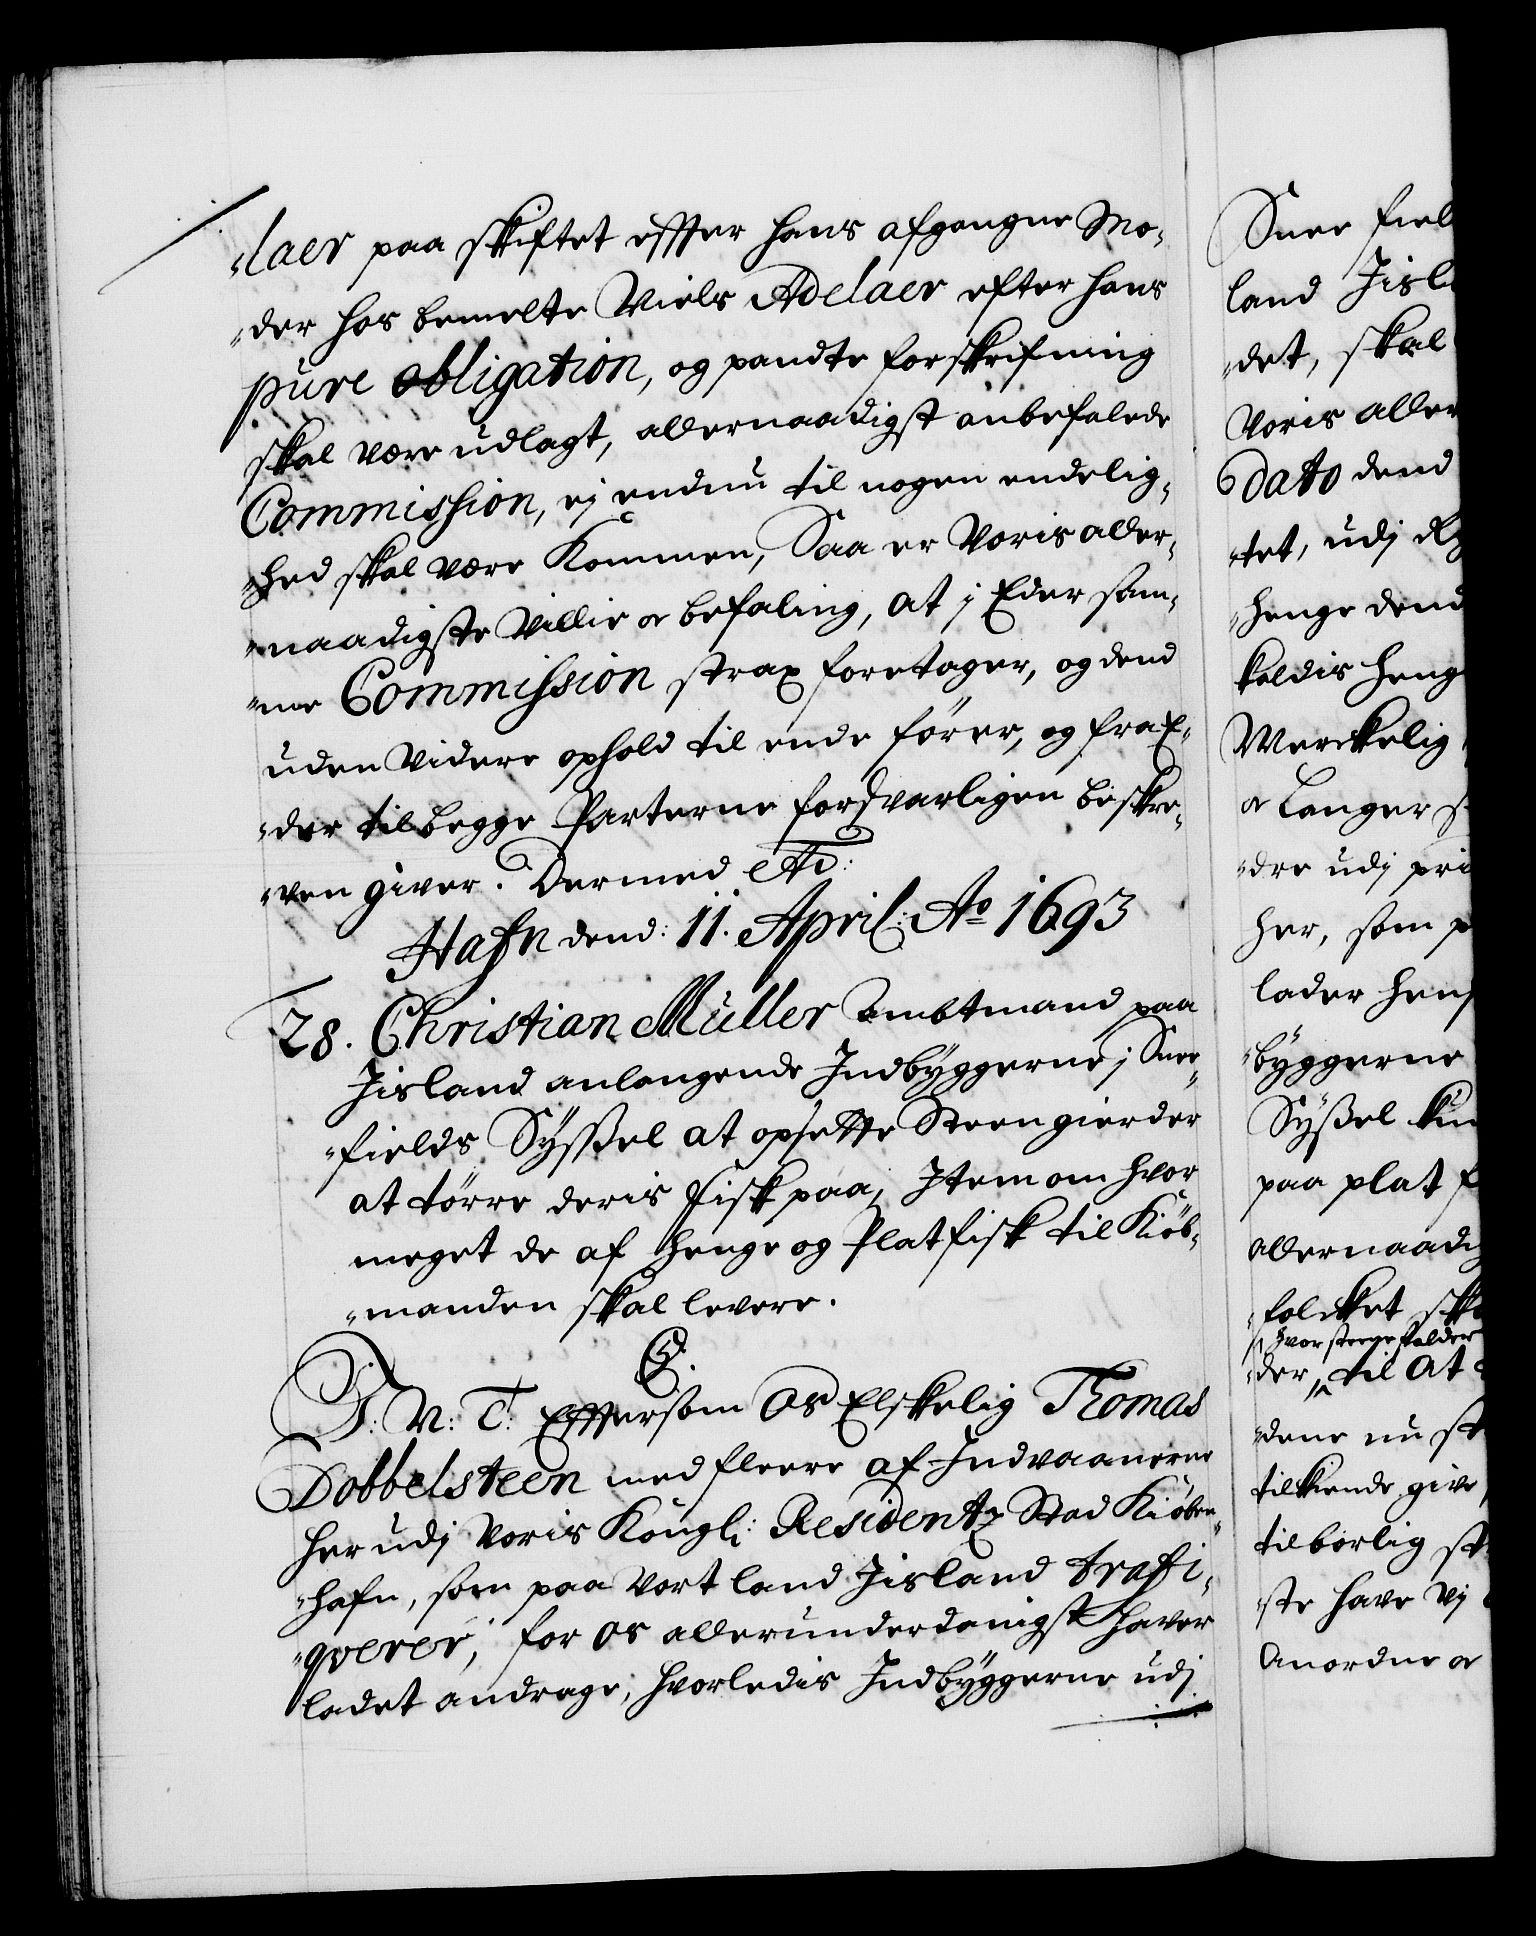 "laer paa skiftet effter hans afgangne Mo-
"der hos bemelte Niels Adelaer efter hans
pure obligation, og pandte forskrifning
skal være udlagt, allernaadigst anbefalede
Commission, ej endnu til nogen endelig-
"hed skal være kommen, Saa er Voris aller-
"naadigste Villie oc befaling, at i Eder sam-
"me Commission strax foretager, og dend
uden videre ophold til ende fører, og fra E-
"der til begge Parterne forsvarligen beskre-
"ven giver. Dermed etc:
Hafn dend: 11. April: Ao 1693
28. Christian Müller Ambtmand paa
Jisland anlangende Indbÿggerne i Snee-
"fields Sÿssel at opsette Steengierder
at tørre deris fisk paa, Item om hvor
meget de af henge og Platfisk til Kiøb-
"manden skal levere.
C5.
G: N: T: Effersom Os Elskelig Thomas
Dobbelsteen med fleere af Indvaanerne
her udj Voris Kongl: Residentz Stad Kiøben-
"hafn, som paa Vort land Jisland trafi-
"qverer, for os allerunderdanigst haver
ladet andrage, hvorledis Indbÿggerne udj
Snee fiel
land Jisl
"det, skal
Voris aller
Dato dend
"tet, udj
"henge dend
kaldis heng
Merckelig
oc langer
"dre udj pri
her, som
lader hen
"bÿggerne
Sÿssel kun
paa plat f
allernaadig
"folcket ska
hvor steene falder
"der, til at
"dene nu st
tilkiende give
tilbørlig st
"ste have Vj
Anordne oc